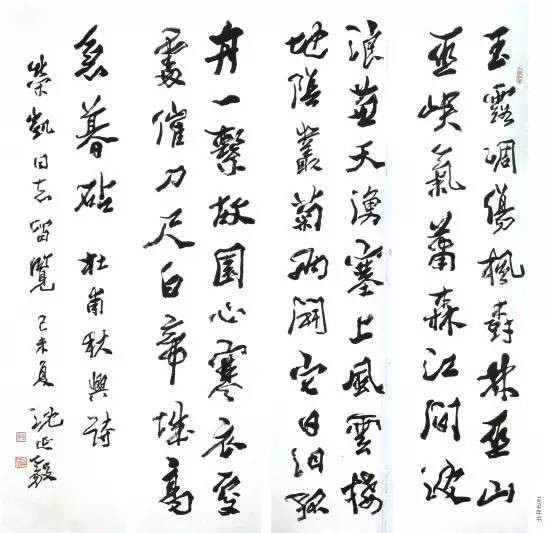 玉露凋傷楓樹林巫山
巫峽氣蕭森江間波
浪兼天湧塞上風雲接
地陰叢菊兩開它日泪孤
舟一繫故園心寒衣處
處催刀尺白帝城高
急暮砧 杜甫秋興詩
榮凱同志留覽 己未夏 沈延毅
1979年书